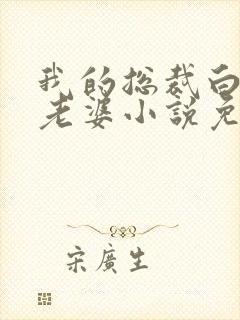 我的总裁白
老婆小說免
宋廣生